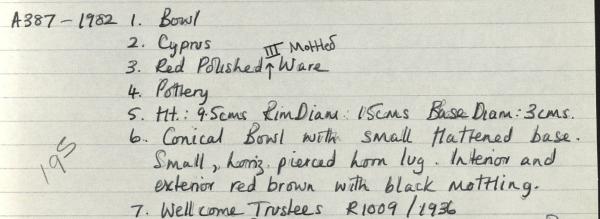 A387-1982 1. Bowl
2. Cyprus
3. Red Polished ↑ III Mottled Ware
4. Pottery
5. Ht.: 9.5cms RimDiam: 15cms Base Diam: 3cms.
6. Conical Bowl with small flattened base.
Small, horiz. pierced horn lug. Interior and
exterior red brown with black mottling.
7. Wellcome Trustees R1009/1936
195